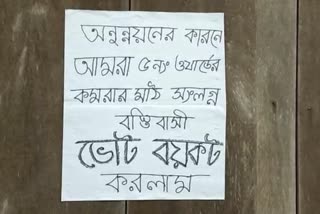 অনুন্নয়নের কারনে
আমরা ৫নং ওয়ার্ডের
কমরার মঠি সংলগ্ন
বস্তি বাসী
ভোট বয়কট
করলাম